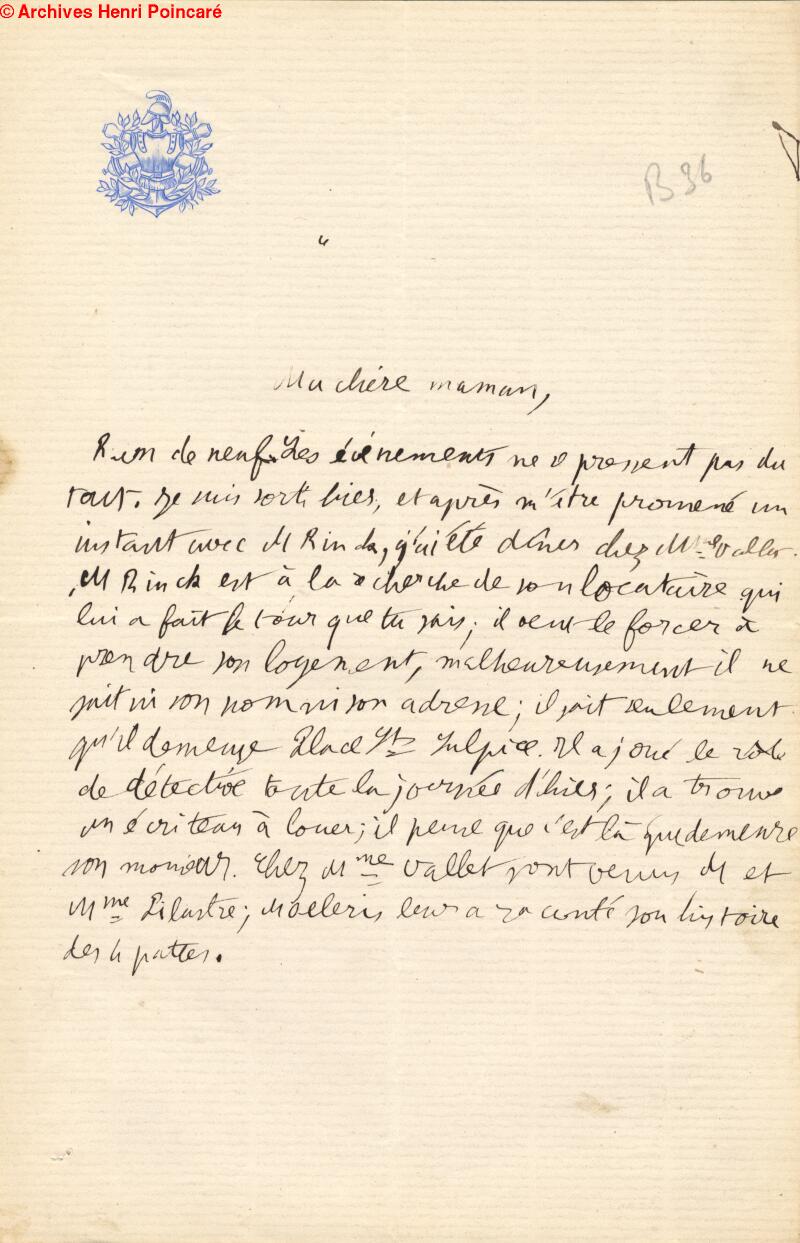 © Archives Henri Poincaré
B 36
Ma chère maman,
Rien de neuf. Les événements ne se pressent pas du
tout. Je suis sorti hier, et après m'être promené un
instant avec M Rinck, j'ai été dîner chez Mme Vallet.
M Rinck est à la recherche de son locataire qui
lui a fait le tour que tu sais; il veut le forcer à
prendre son logement, malheureusement il ne
sait ni son nom ni son adresse; il sait seulement
qu'il demeure Place St Sulpice. Il a joué le rôle
de détective toute la journée d'hier; il a trouvé
un écriteau à louer; il pense que c'est là que demeure
son monsieur. Chez Mme Vallet sont venus M et
Mme Pilastre; leur a raconté son histoire
des 4 pattes.